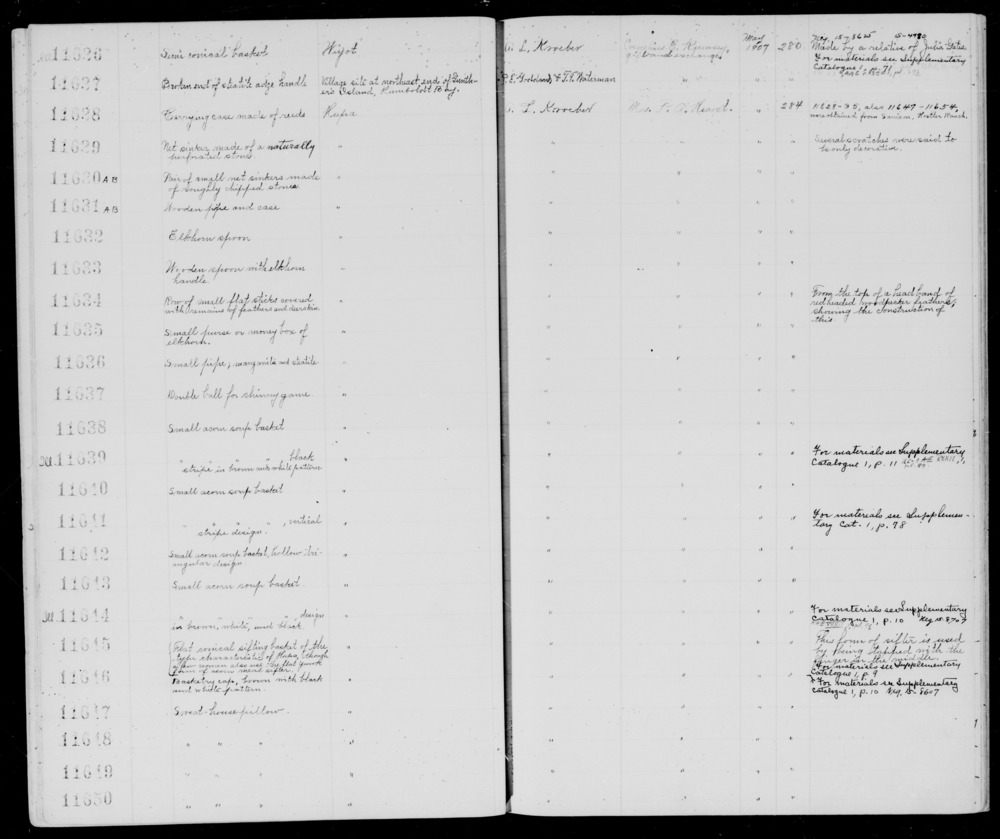 11626 Semi conical basket Wiyot A. L. Kroeber May 1907 280 Neg. 15-8625 15-4980
Made by a relative of Julia Gates
For materials see Supplementary
Catalogue 1, p. 11
11627 Broken end of statite adge handle Village site at northeast end of Gunth-
er's Island, Humboldt Bay. P. E. Goddard, & T. T. Waterman
11628 Carrying case made of reeds Hupa A. L. Kroeber Mrs. P. A. Hearst. " 284 11628-35, also 11647-11654,
were obtained from Hostler Ranch.
11629 Net sinker made of a naturally " " " " " Several scratches were said to
perforated stone. be only decorative.
11630 AB Pair of small net sinkers made " " " " "
of roughly chipped stones
11631 AB Wooden pipe and case " " " " "
11632 Elkhorn spoon " " " " "
11633 Wooden spoon with elkhorn " " " " "
handle.
11634 Row of small flat sticks covered " " " " " From the top of a head band of
with remains of feathers and deerskin. redheaded woodpecker feathers,
showing the construction of
this.
11635 Small purse or money box of " " " " "
elkhorn.
11636 Small pipe, manzanita and statite " " " " "
11637 Double ball for shinny game. " " " " "
11638 Small acorn soup basket " " " " "
11639 " " " " black " " " " " For materials see Supplementary
stripe in brown and white pattern Catalogue 1, p. 11
11640 Small acorn soup basket " " " " "
11641 " " " ", vertical " " " " " For materials see Supplemen-
stripe design. tary Cat. 1, p. 78
11642 Small acorn soup basket, hollow tri- " " " " "
angular design
11643 Small acorn soup basket. " " " " "
11644 " " " ", design " " " " " For materials see Supplementary
in brown, white, and black Catalogue 1, p. 10 Neg. 15-8707
11645 Flat conical sifting basket of the " " " " " This form of sifter is used
type characteristic of Hupa, though by being tapped with the
women also use the flat finger in the middle.
form of acorn meal sifter. For materials see Supplementary
Catalogue 1, p. 9
11646 Basketry cap, brown with black " " " " " For materials see Supplementary
and white pattern. Catalogue 1, p. 10 Neg. 15-8607
11647 Sweat-house pillow. " " " " "
11648 " " " " " " " "
11649 " " " " " " " "
11650 " " " " " " " "